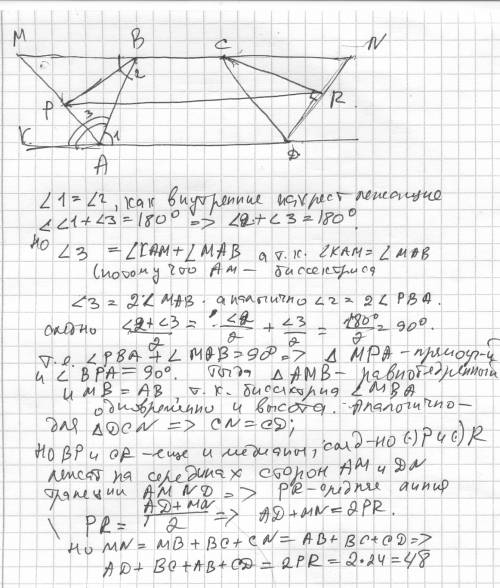 M B C N
2
P 3 R
K 1
A D
∠1 = ∠2, как внутренние накрест лежащие
∠1 + ∠3 = 180° => ∠2 + ∠3 = 180°.
но ∠3 = ∠KAM + ∠MAB а т.к. ∠KAM = ∠MAB
(потому что AM – биссектриса
∠3 = 2∠MAB. аналогично ∠2 = 2∠PBA.
∠2+∠3/2 = ∠2/2 + ∠3/2 = 180°/2 = 90°.
т.е. ∠PBA + ∠MAB = 90° => △ MPA – прямоуг-й
и ∠BPA = 90°. Тогда △AMB – равнобедренный
и MB = AB, т.к. биссектриса ∠MBA
одновременно и высота. Аналогично –
для △DCN => CN = CD;
Но BP и CR – еще и медианы, след-но (·)P и (·)R
лежат на серединах сторон AM и DN
трапеции AMND => PR – средняя линия
PR = AD+MN/2 => AD+MN = 2PR.
Но MN = MB + BC + CN = AB + BC + CD =>
AD + BC + AB + CD = 2PR = 2·24 = 48